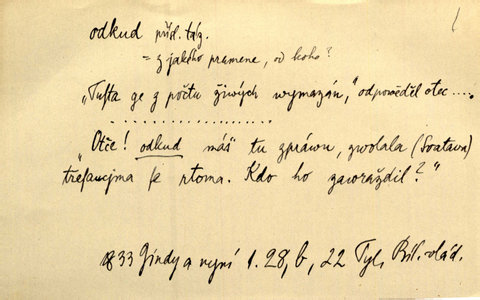 odkud přísl. táz.
= z jakého pramene, od koho?
„Tufta ge z počtu žiwých wymazán,“ odpowěděl otec ....
„Otče! odkud máš tu zpráwu, zwolala (Swatawa)
třesaucyma se rtoma. Kdo ho zawraždil?“
1833 Gindy a nyní 1. 28, b, 22 Tyl,